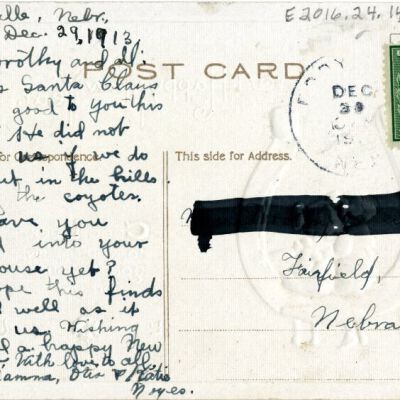 E2016.24.1
alle, Nebr,
Dec. 29, 1913
orothy and all:
s Santa Claus
good to you this
He did not
us if we do
ut in the hills
the coyotes.
ave you
d into your
ouse yet?
ope this finds
well as it
us. Wishing
a happy New
With love to all,
amma, Otis & Katie
Noyes.
POST CARD
for Correspondence.
This side for Address.
DEC
29
NEB
Fairfield,
Nebra